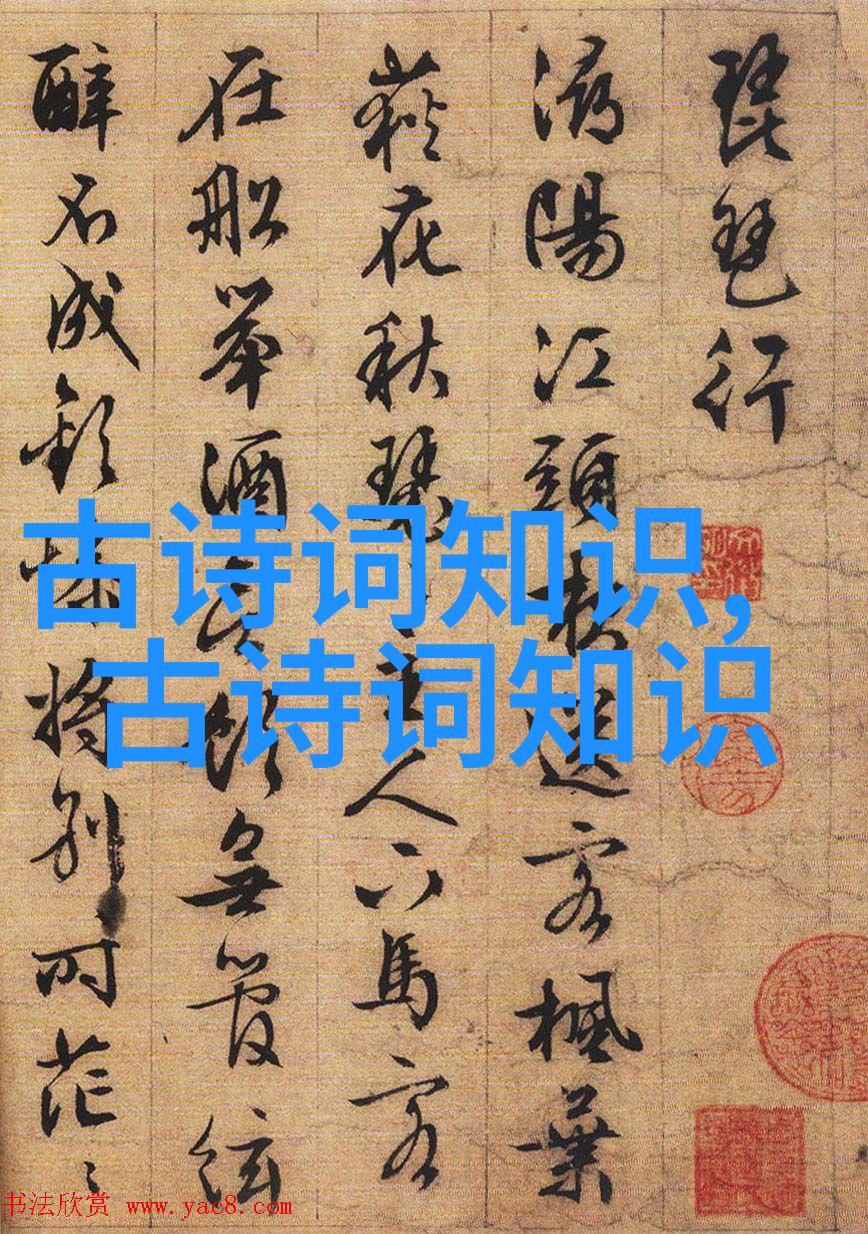 琵琶行
潯陽江頭夜送客楓葉
荻花秋瑟〻主人下馬客
在船舉酒欲飲無管絃
醉不成歡慘將別〻時茫〻
古诗词知识,
古诗词知识
书法欣赏 www.yac8.com